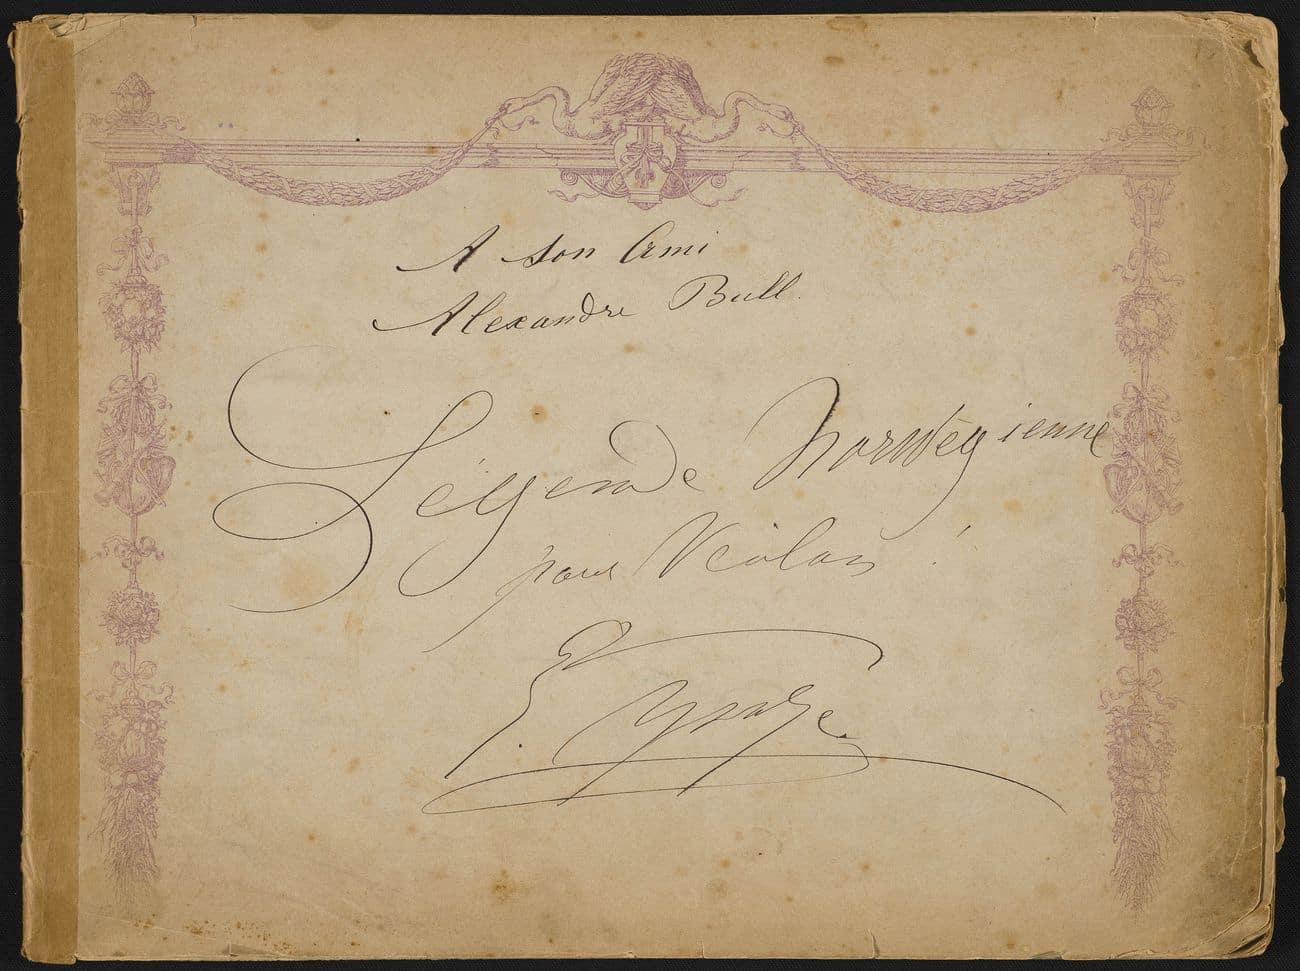 A son Ami
Alexandre Bull.
Légende Norwégienne
pour Violon !
E. Ysaÿe.